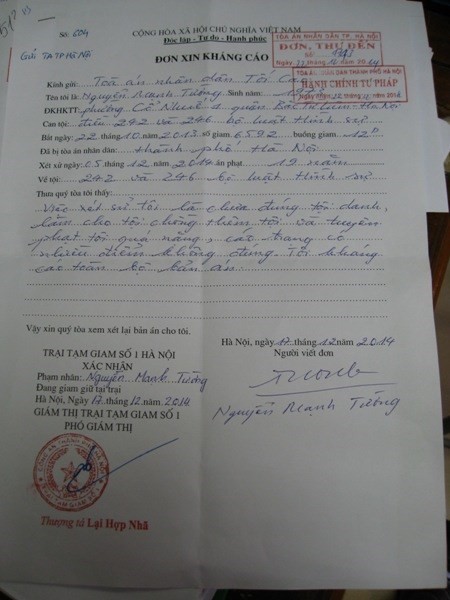 Số: 684
Gửi TATPHN
CỘNG HÒA XÃ HỘI CHỦ NGHĨA VIỆT NAM
Độc lập - Tự do - Hạnh phúc
TÒA ÁN NHÂN DÂN TP. HÀ NỘI
ĐƠN, THƯ ĐẾN
ĐƠN XIN KHÁNG CÁO
HÀNH CHÍNH TƯ PHÁP
Kính gửi: Toà án nhân dân Tối Cao
Tên tôi là: Nguyễn Mạnh Tường Sinh năm:
ĐKHKTT: phường Cổ Nhuế 1 quận Bắc Từ Liêm - Hà Nội
Can tội: điều 242 và 246 bộ luật hình sự
Bắt ngày: 22 tháng 10 năm 2013 số giam 6592 buồng giam 12
Đã bị tòa án nhân dân: thành phố Hà Nội
Xét xử ngày 05 tháng 12 năm 2014 án phạt 19 năm
Về tội: 242 và 246 bộ luật hình sự
Thưa quý tòa tôi thấy:
Việc xét xử tôi là chưa đúng tội danh,
làm cho tôi chồng thêm tội và tuyên
phạt tôi quá nặng, các trang có
nhiều điểm không đúng. Tôi kháng
cáo toàn bộ bản án.
Vậy xin quý tòa xem xét lại bản án cho tôi.
TRẠI TẠM GIAM SỐ 1 HÀ NỘI
XÁC NHẬN
Phạm nhân: Nguyễn Mạnh Tường
Đang giam giữ tại trại
Hà Nội, Ngày 17 tháng 12 năm 2014
GIÁM THỊ TRẠI TẠM GIAM SỐ 1
PHÓ GIÁM THỊ
Thượng tá Lại Hợp Nhã
Hà Nội, ngày 17 tháng 12 năm 2014
Người viết đơn
Nguyễn Mạnh Tường